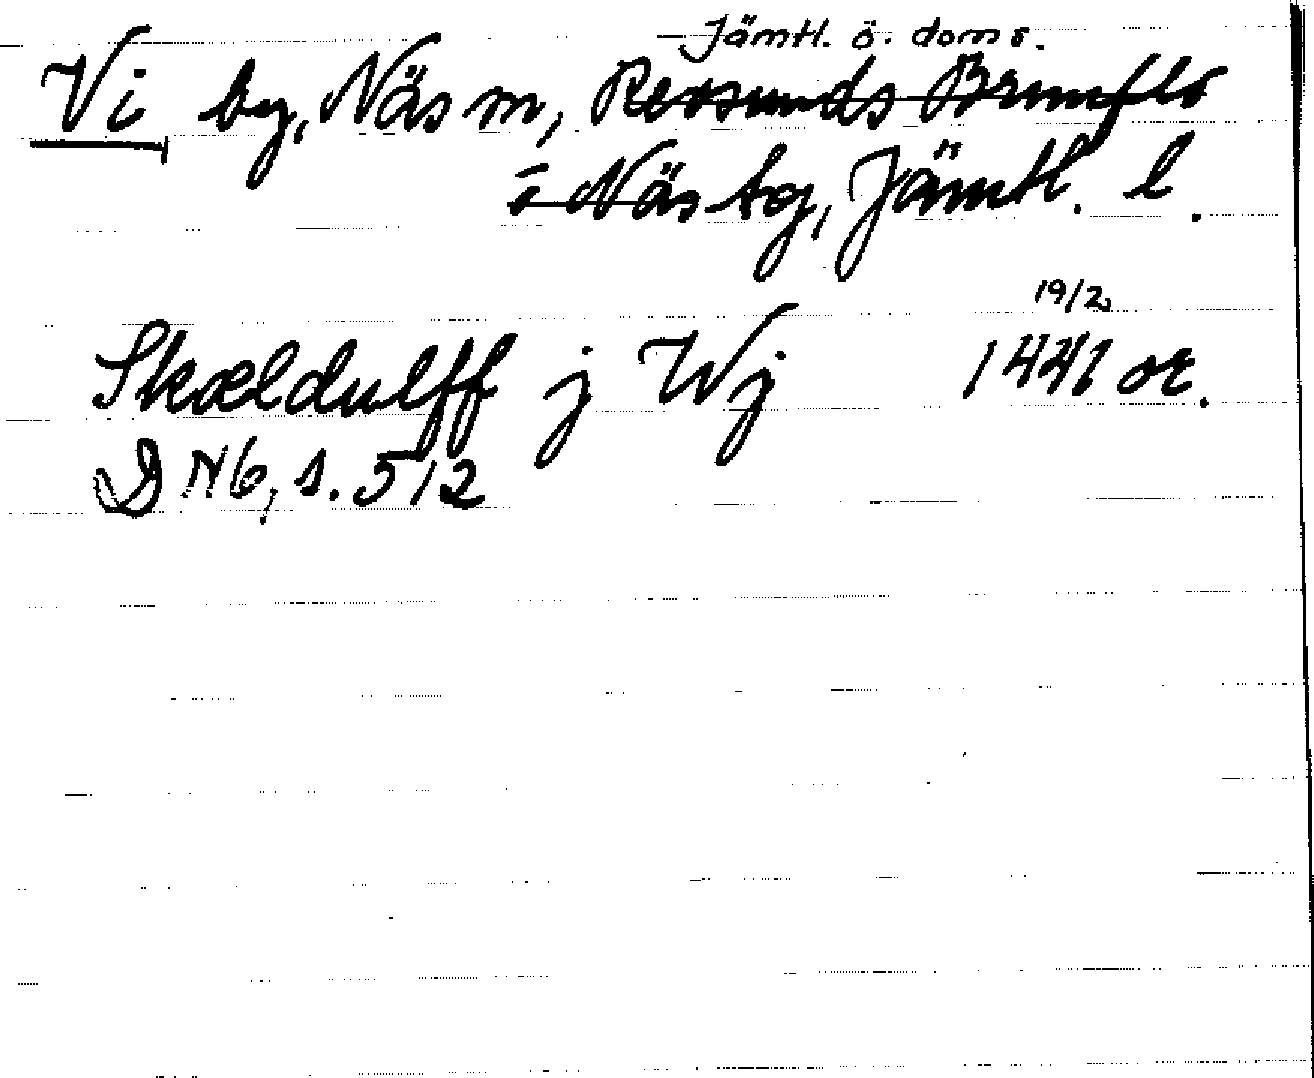 Jämtl. ö. doms.
Vi by, Näs sn, Revsunds Brunflo
o Näs tg, Jämtl. l.
19/2
Skældulff j Wj 1441 or.
DN 6, s. 512